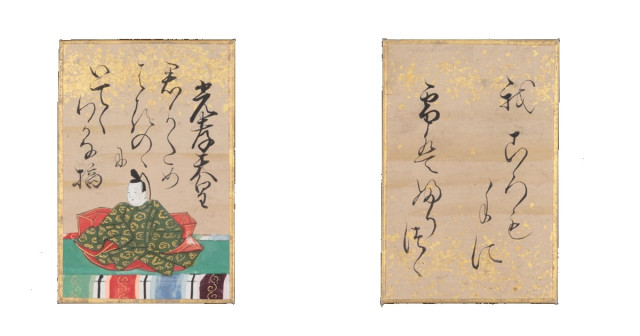 光孝天皇
君かため
はるのゝ
に
いてゝ
わかな摘
我ころも
手に
雪はふりつゝ